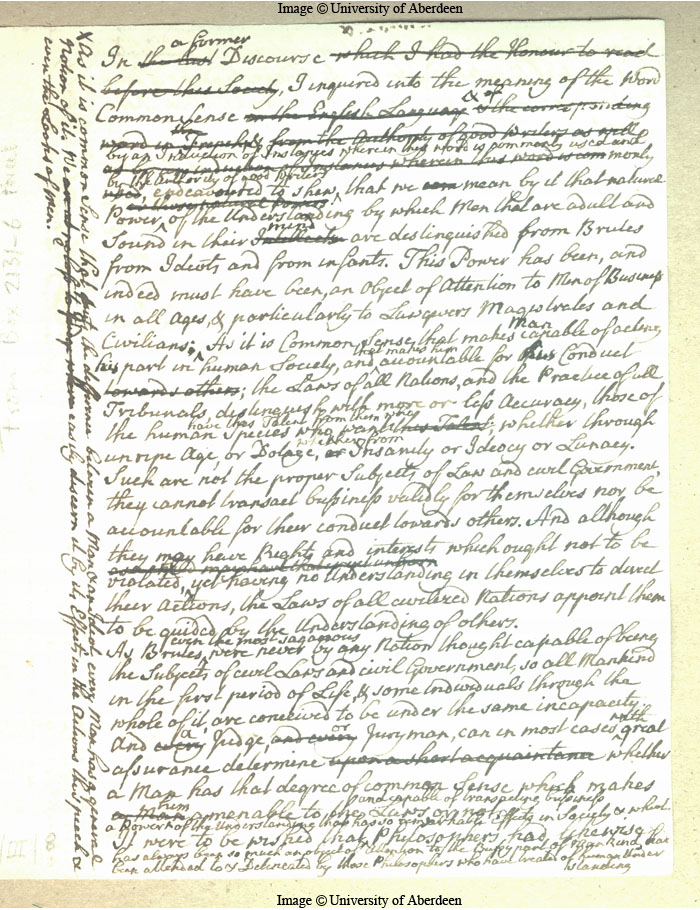 Image © University of Aberdeen
a former
In the last Discourse which I had the Honour to read
before this Society, I inquired into the meaning of the Word
Common Sense in the English Language & of the corresponding
word in French & from the Authority of good Writers as well
by an Induction of Instances wherein this word is commonly used and
wherein this word is commonly
by the Authority of good Writers
used, endeavoured to shew, that we mean by it that natural
Power, of the Understanding by which Men that are adult and
Sound in their mind Intellects are distinguished from Brutes
from Ideots and from infants. This Power has been, and
indeed must have been, an Object of Attention to Men of Business
in all Ages, & particularly to Lawyers Magistrates and
Civilians; As it is Common Sense that makes Man capable of acting
his part in human Society, and that makes him accountable for his Conduct
towards others; the Laws of all Nations, and the Practice of all
Tribunals, distinguish with more or less Accuracy, those of
have this Talent from them who
the human Species who want this Talent; whether through
unripe Age, or Dotage, or whether from Insanity or Ideocy or Lunacy.
Such are not the proper Subjects of Law and civil Government,
they cannot transact bussiness validly for themselves nor be
accountable for their conduct towards others. And although
they may have Rights and interests which ought not to be
violated, yet having no Understanding in themselves to direct
their Actions, the Laws of all civilized Nations appoint them
to be guided by the Understanding of others.
even the most sagacious
As Brutes, were never by any Nation thought capable of being
the Subjects of civil Laws and civil Government, so all Mankind
in the first period of Life, & some Individuals through the
whole of it, are conceived to be under the same incapacity.
And every a Judge, and every or Juryman, can in most cases, with great
assurance determine upon a short acquaintance whether
a Man has that degree of common Sense which makes
and capable of transacting bussiness
a Man him amenable to the Laws or not
a Power of the Understanding that has so Effects in Society & what
It were to be wished that Philosophers had likewise
has always been so much an object of attention to the Bussy part of Mankind, had
been attended to & Delineated by those Philosophers who have treated of human Under
standing
X As it is common Sense that puts the difference between a Man & an Ideot, every Man has a general
Notion of it. We easily discern it by its Effects in the Actions the speech &
even the Looks of Men.
Box 2131-6
III 8
Image © University of Aberdeen